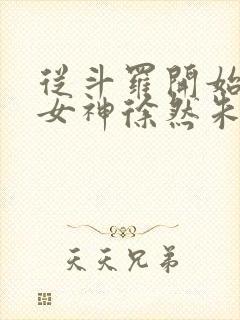 從斗羅開始
女神徐然朱
天天兄弟